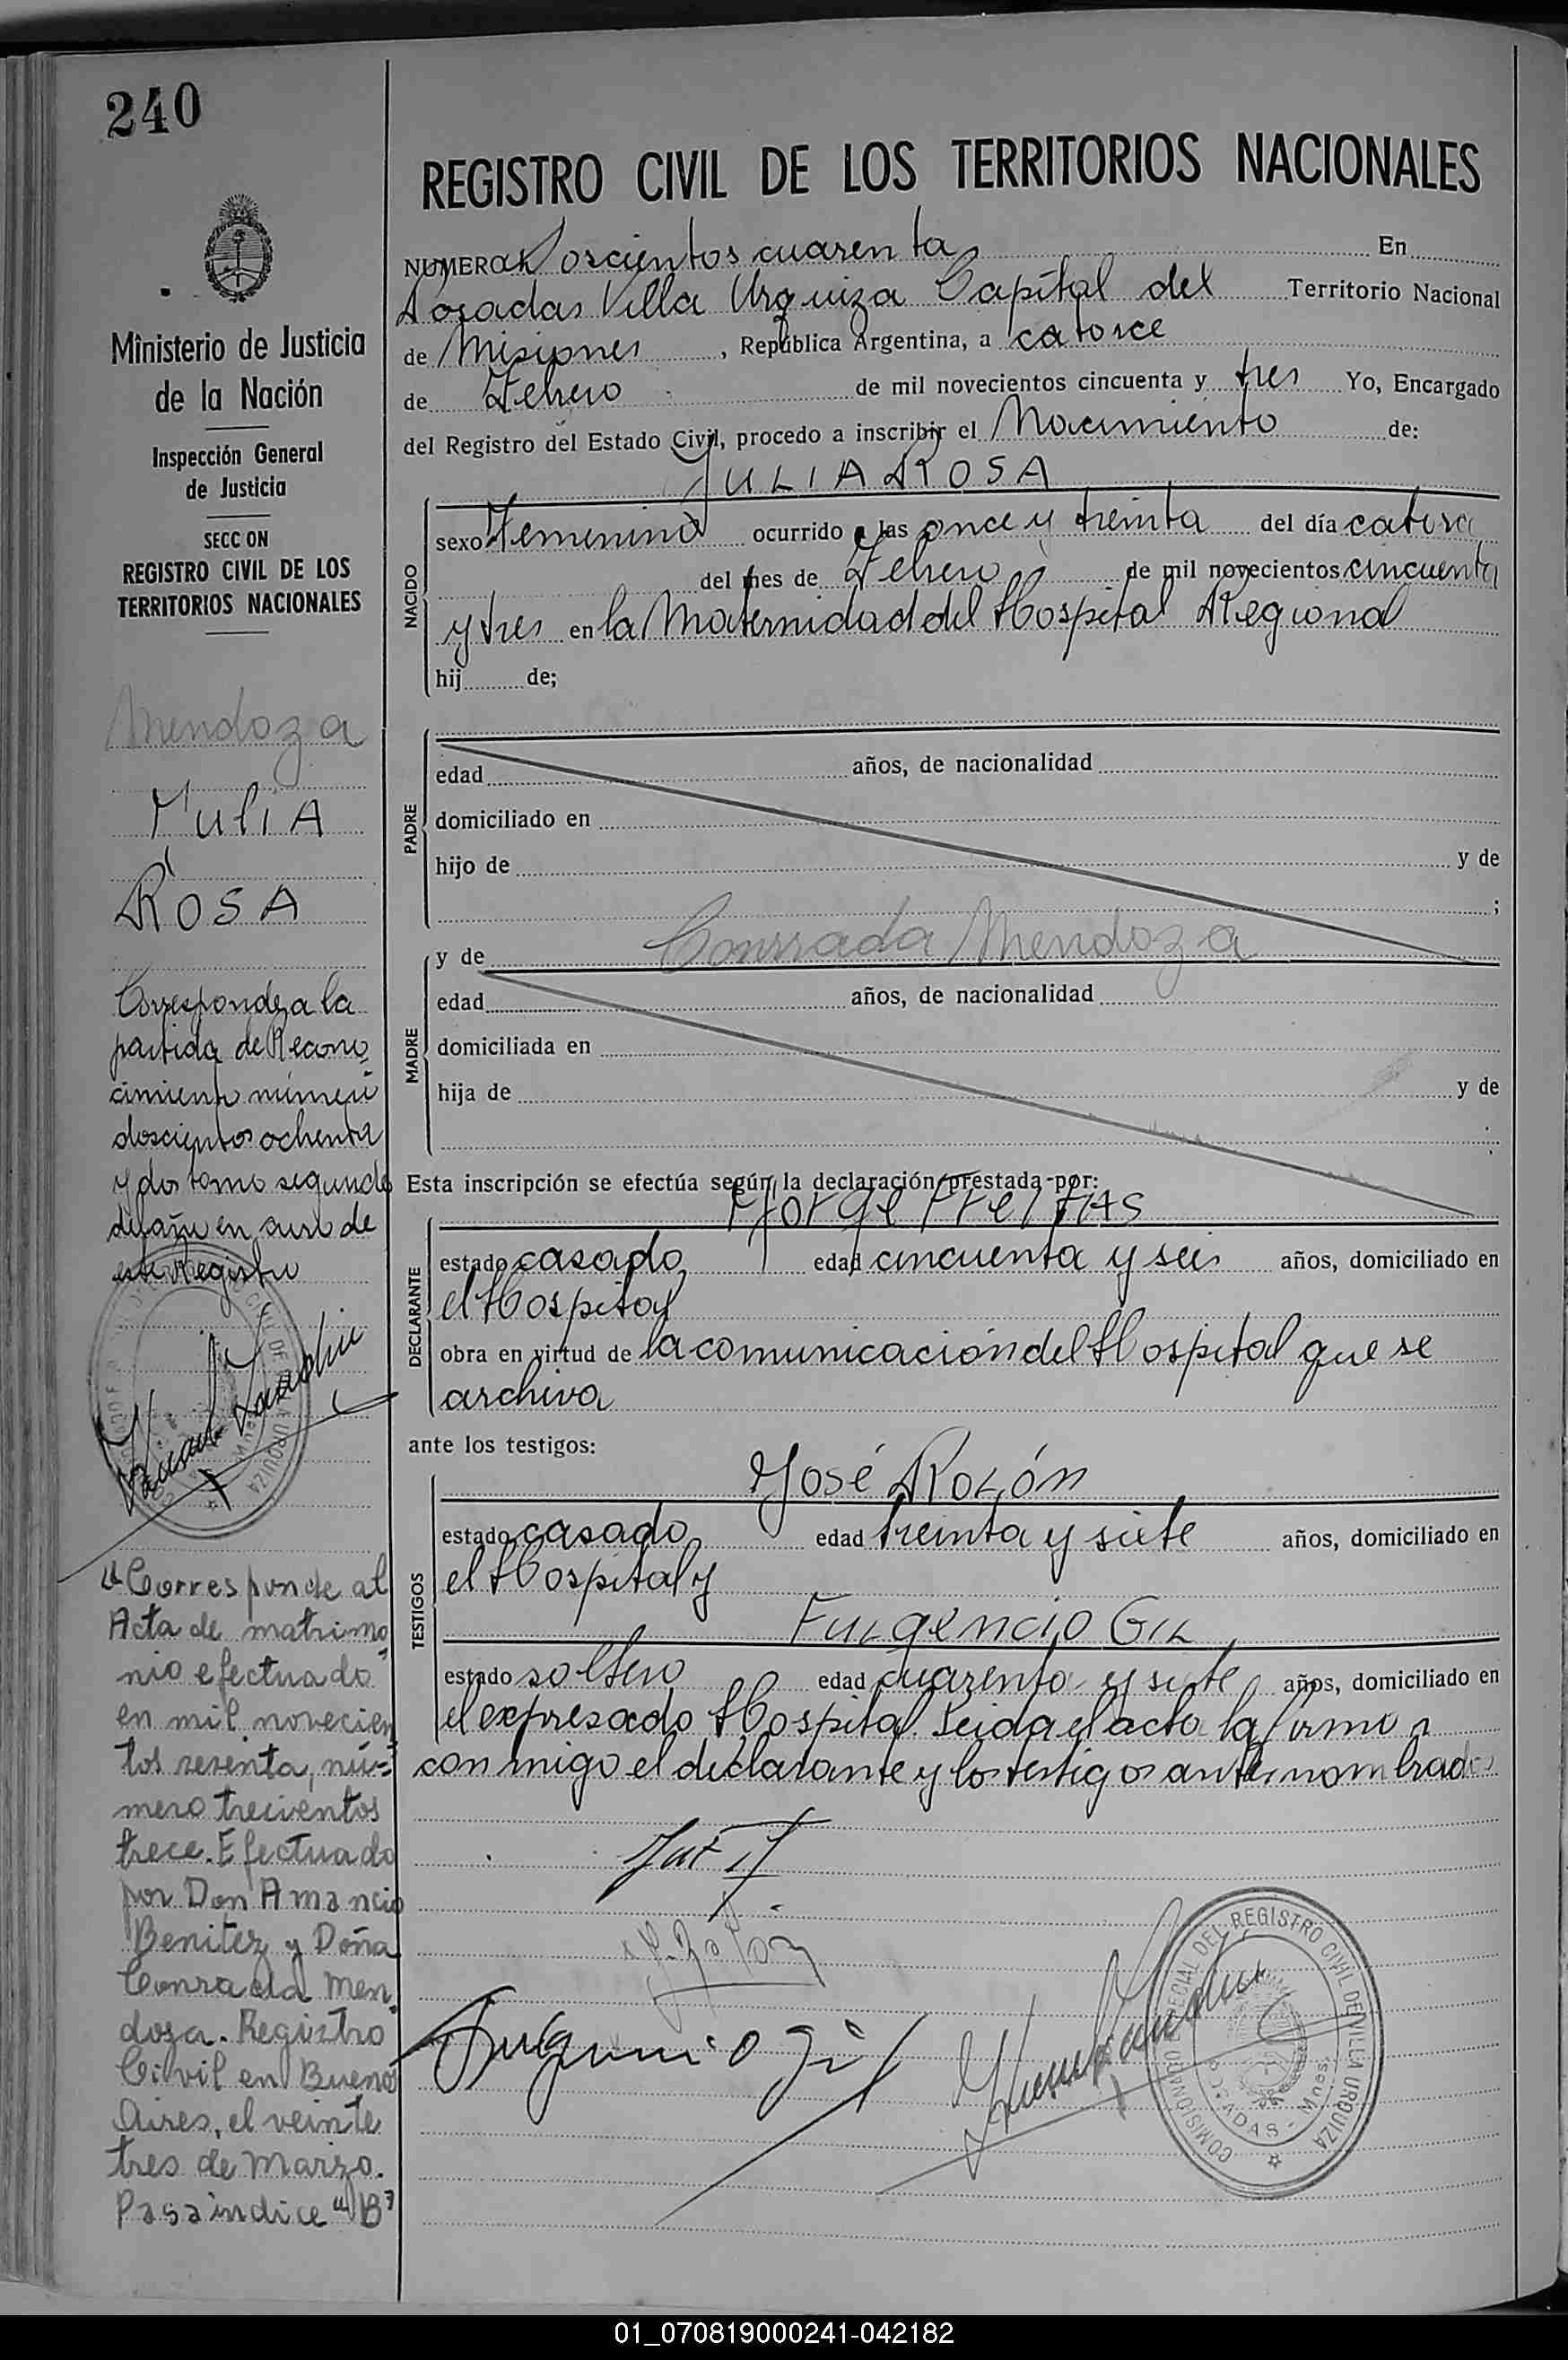 240
Ministerio de Justicia
de la Nación
Inspección General
de Justicia
SECC ON
REGISTRO CIVIL DE LOS
TERRITORIOS NACIONALES
Mendoza
JuliA
ROSA
Corresponde a la
partida de Recono
cimiento número
doscientos ochenta
y dos tomo segundo
del año en curso de
este Registro
"Corresponde al
Acta de matrimo
nio efectuado
en mil novecien
tos sesenta, nú=
mero treciento​s
trece. Efectuado
por Don Amancio
Benitez y Doña
Conrada Men
dosa. Registro
Civil en Buenos
Aires, el veinte
tres de Marzo.
Pasa indice "B"
REGISTRO CIVIL DE LOS TERRITORIOS NACIONALES
NUMERO Doscientos cuarenta En
Posadas Villa Urquiza Capital del Territorio Nacional
de Misiones, República Argentina, a catorce
de Febrero de mil novecientos cincuenta y tres Yo, Encargado
del Registro del Estado Civil, procedo a inscribir el Nacimiento de:
JULIA ROSA
NACIDO
sexo Femenino ocurrido a las once y treinta del día catorce
del mes de Febrero de mil novecientos cincuenta
y tres en la Maternidad del Hospital Regional
hij de;
PADRE
edad años, de nacionalidad
domiciliado en
hijo de y de
;
y de Conrrada Mendoza
MADRE
edad años, de nacionalidad
domiciliada en
hija de y de
Esta inscripción se efectúa según la declaración prestada por:
Jorge Freitas
DECLARANTE
estado casado edad cincuenta y seis años, domiciliado en
el Hospital
obra en virtud de la comunicación del Hospital que se
archiva
ante los testigos:
José Rolón
TESTIGOS
estado casado edad treinta y siete años, domiciliado en
el Hospital y
Fulgencio Gil
estado soltero edad cuarenta y siete años, domiciliado en
el expresado Hospital. Leida el acta la firman
conmigo el declarante y los testigos antes nombrados
Fulgencio Gil
COMISIONADO ESPECIAL DEL REGISTRO CIVIL DE VILLA URQUIZA
POSADAS - Mnes.
01_070819000241-042182